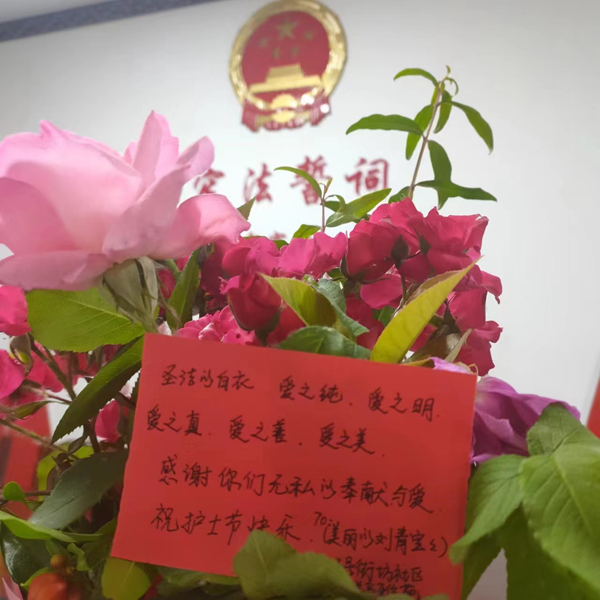 宪法誓词
圣洁的白衣 爱之纯、爱之明、
爱之真、爱之善、爱之美、
感谢你们无私的奉献与爱
祝护士节快乐、70(美丽的刘青宝
号街坊社区